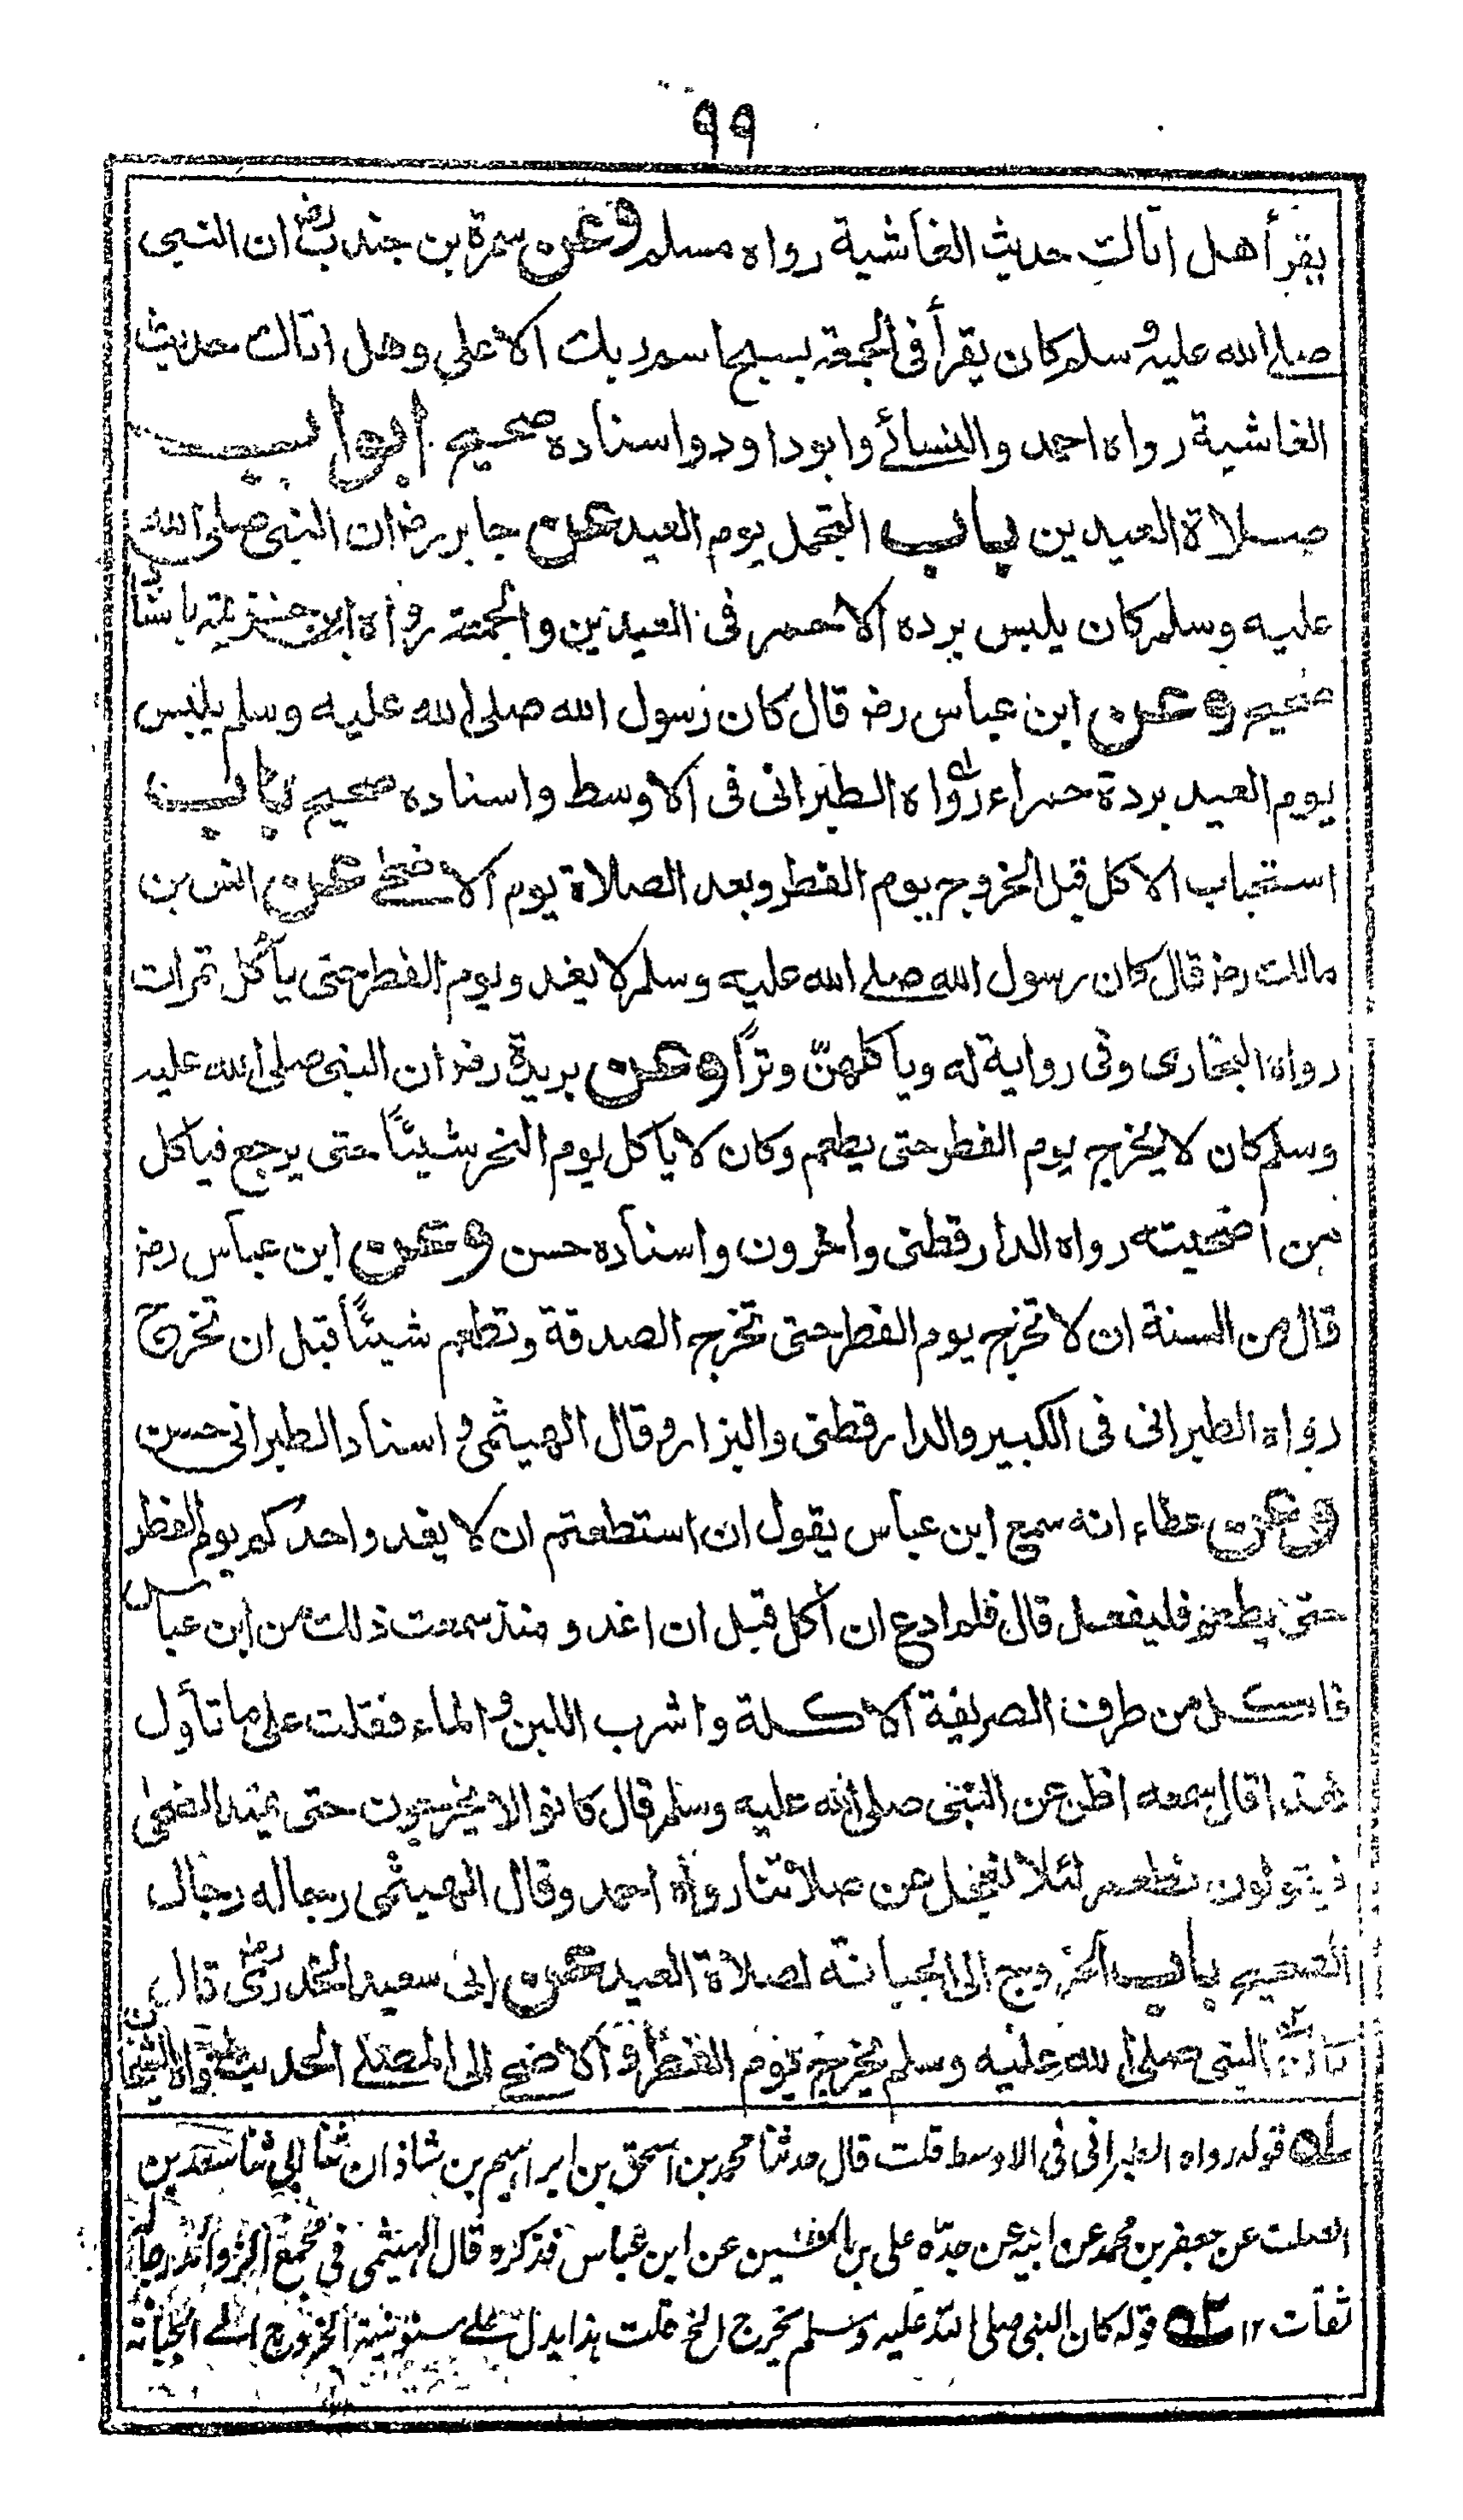 ٩٩
يقرأ هل اتاك حديث الغاشية رواه مسلم وعن سمرة بن جندب رض ان النبى
صلے الله عليه وسلم كان يقرأ فى الجمعة بسبح اسم ربك الاعلى وهل اتاك حديث
الغاشية رواه احمد والنسائے وابوداود واسناده صحيح ابواب
صلاة العيدين باب التجمل يوم العيد عن جابر رض ان النبى صلى الله
عليه وسلم كان يلبس برده الاحمر فى العيدين والجمعة رواه ابن خزيمة باسناد
صحيح وعن ابن عباس رض قال كان رسول الله صلى الله عليه وسلم يلبس
يوم العيد بردة حمراء رواه الطبرانى فى الاوسط واسناده صحيح باب
استحباب الاكل قبل الخروج يوم الفطر وبعد الصلاة يوم الاضحے عن انس بن
مالك رض قال كان رسول الله صلے الله عليه وسلم لا يغدو يوم الفطر حتى ياكل تمرات
رواه البخارى وفى رواية له وياكلهنّ وترًا وعن بريدة رض ان النبى صلى الله عليه
وسلم كان لا يخرج يوم الفطر حتى يطعم وكان لا ياكل يوم النحر شيئًا حتى يرجع فياكل
من اضحيته رواه الدارقطنى واخرون واسناده حسن وعن ابن عباس رض
قال من السنة ان لا تخرج يوم الفطر حتى تخرج الصدقة وتطعم شيئًا قبل ان تخرج
رواه الطبرانى فى الكبير والدارقطنى والبزار وقال الهيثمى واسناد الطبرانى حسن
وعن عطاء انه سمع ابن عباس يقول ان استطعتم ان لا يغدو احدكم يوم الفطر
حتى يطعم فليفعل قال فلم ادع ان اكل قبل ان اغدو منذ سمعت ذلك من ابن عباس
فاكل من طرف الصريفة الاكلة واشرب اللبن والماء فقلت على ما تأول
هذا قال سمعه اظن عن النبى صلى الله عليه وسلم قال كانوا لا يخرجون حتى يمتد الضحى
فيقولون نطعم لئلا نعجل عن صلاتنا رواه احمد وقال الهيثمى رجاله رجال
الصحيح باب الخروج الى الجبانة لصلاة العيد عن ابى سعيد الخدرى رض قال
كان النبى صلى الله عليه وسلم يخرج يوم الفطر والاضحے الى المصلے الحديث رواه الشيخان
له قوله رواه الطبرانى فى الاوسط قلت قال حدثنا محمد بن اسحق بن ابراهيم بن شاذان ثنا ابي ثنا سعد بن
الصلت عن جعفر بن محمد عن ابيه عن جدّه على بن الحسين عن ابن عباس فذكره قال الهيثمى فى مجمع الزوائد رجاله
ثقات ١٢ ٢ه قوله كان النبى صلى الله عليه وسلم يخرج الخ قلت هذا يدل علے سنونية الخروج الے الجبانة